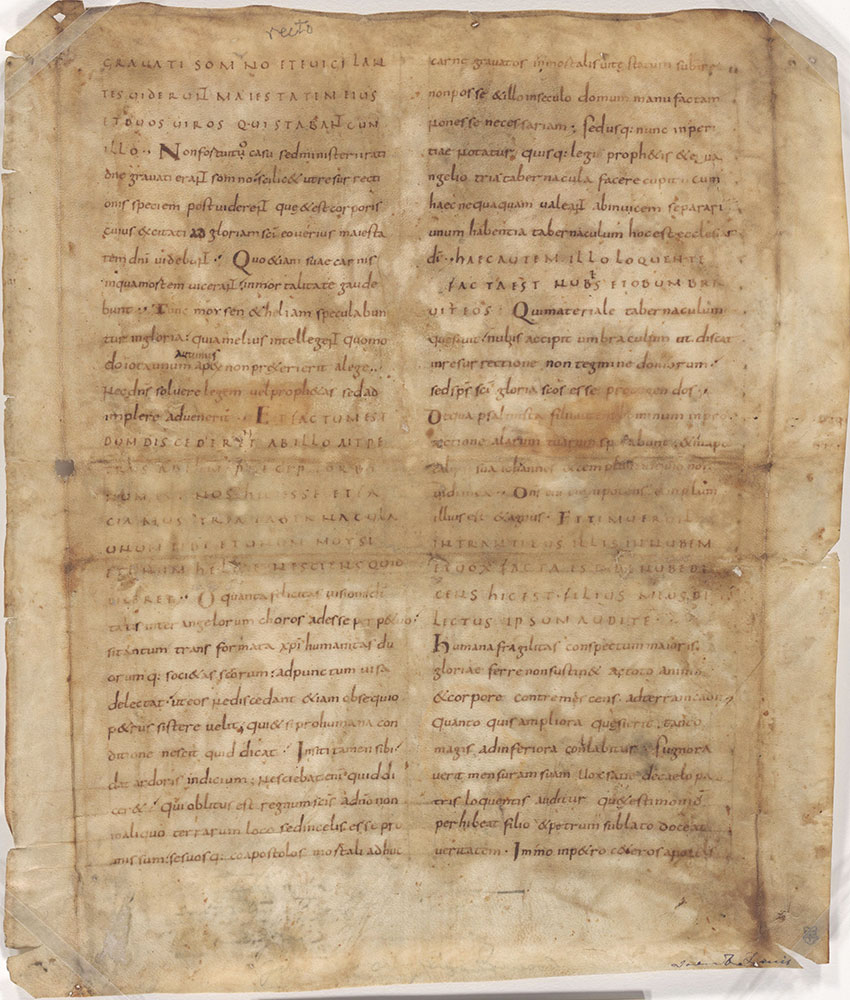 recto
GRAVATI SOMNO ET EVIGILAN
TES VIDERUNT MAIESTATEM EIUS
ET DUOS VIROS QUI STABANT CUM
ILLO. Non fortuitu casu sed ministerii rati
one gravati erant somno scilic& ut resur recti
onis speciem post viderent que & est corporis
cuius excitati ad gloriam sci &
tem dni videbunt. Quo & iam suae carnis
inquam ostem vicerant inmortalitate gaude
bunt. Tunc moysen & heliam speculabun
tur in gloria: quia melius intellegent quomo
do iota unum aut unus apex non pr&erierit a lege.
Nec dns solvere legem vel proph&as sed ad
implere advenerit. ET FACTUM EST
DUM DISCEDERENT AB ILLO AIT PE
TRUS AD IHM PRECEPTOR BO
NUM EST NOS HIC ESSE ET FA
CIAMUS TRIA TABERNACULA
UNUM TIBI ET UNUM MOYSI
ET UNUM HELIAE NESCIENS QUID
DICERET. O quanta felicitas visioni
tatis inter angelorum choros adesse perp&uo
si tantum transformata xpi humanitas du
orumq: soci&as scorum: ad punctum visa
delectat: ut eos ne discedant &iam obsequio
p&rus sistere velit, qui & si pro humana con
ditione nescit quid dicat. Insiti tamen sibi
dat ardoris indicium: Nesciebat enim quid di
cer&. Qui oblitus est regnum scis a dno non
in aliquo terrarum loco sed in celis esse pro
missum: se suosq: coapostolos mortali adhuc
carne gravatos inmortalis vite statum subire
non posse & illo in seculo domum manu factam
non esse necessariam; Sed usq: nunc inperi
tiae notatur quisq: legi proph&is & eva
ngelio tria tabernacula facere cupit cum
haec nequaquam valeant ab invicem separari
unum habentia tabernaculum hoc est ecclesiam
di. HAEC AUTEM ILLO LOQUENTE
FACTA EST NUBES ET OBUMBRA
VIT EOS. Qui materiale tabernaculum
quesivit nubis accipit umbraculum ut discat
in resur rectione non tegmine domorum.
sed sps sci gloria scos esse protegendos.
De qua psalmista filii autem hominum in pro
tectione alarum tuarum sperabunt; & in apo
calipsi sua iohannes & templum non
vidi in ea. Dns enim omnipotens templum
illius est & agnus. ET TIMUERUNT
INTRANTIBUS ILLIS IN NUBEM
ET VOX FACTA EST DE NUBE DI
CENS HIC EST FILIUS MEUS DI
LECTUS IPSUM AUDITE.
Humana fragilitas conspectum maioris
gloriae ferre non sustin& ac toto animo
& corpore contremescens. ad terram cadit
quanto quis ampliora quesierit. tanto
magis ad inferiora conlabitur si ignora
verit mensuram suam Vox sane de caelo pa
tris loquentis auditur que & testimoniu
perhibeat filio & petrum sublato doceat
veritatem. Immo in p&ro c&eros apostolos